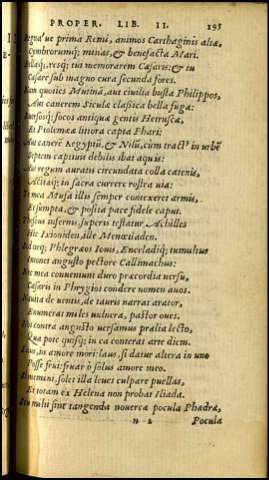 PROPER. LIB. II. 195
Regnáue prima Remi, animos Carthaginis altæ,
Cymbrorumq; minas, & benefacta Mari:
Bellaq;, resq; tui memorarem Cæsaris: & tu
Cæsare sub magno cura secunda fores.
Nam quoties Mutinã, aut ciuilia busta Philippos,
Aut canerem Sicula classica bella fuga:
Euersosq; focos antiquæ gentis Hetruscæ,
Et Ptolemææ littora capta Phari:
Aut canerẽ Aegyptũ, & Nilũ, cùm tract' in urbẽ
Septem captiuis debilis ibat aquis:
Aut regum auratis circundata colla catenis,
Actiaq; in sacra currere rostra uia:
Te mea Musa illis semper contexeret armis,
Et sumpta, & posita pace fidele caput.
Theseus infernis, superis testatur Achilles
Hic Ixioniden, ille Menœtiaden.
Sed neq; Phlegræos Iouis, Enceladiq; tumultus
Intonet angusto pectore Callimachus:
Nec mea conueniunt duro præcordia uersu,
Cæsaris in Phrygios condere nomen auos.
Nauita de uentis, de tauris narrat arator,
Enumerat miles uulnera, pastor oues.
Nos contra angusto uersamus prælia lecto,
Qua pote quisq; in ea conterat arte diem.
Laus, in amore mori: laus, si datur altera in uno
Posse frui: fruar ô solus amore meo.
Si memini, solet illa leues culpare puellas,
Et totam ex Helena non probat Iliada.
Seu mihi sint tangenda nouercæ pocula Phædræ,
n 2 Pocula